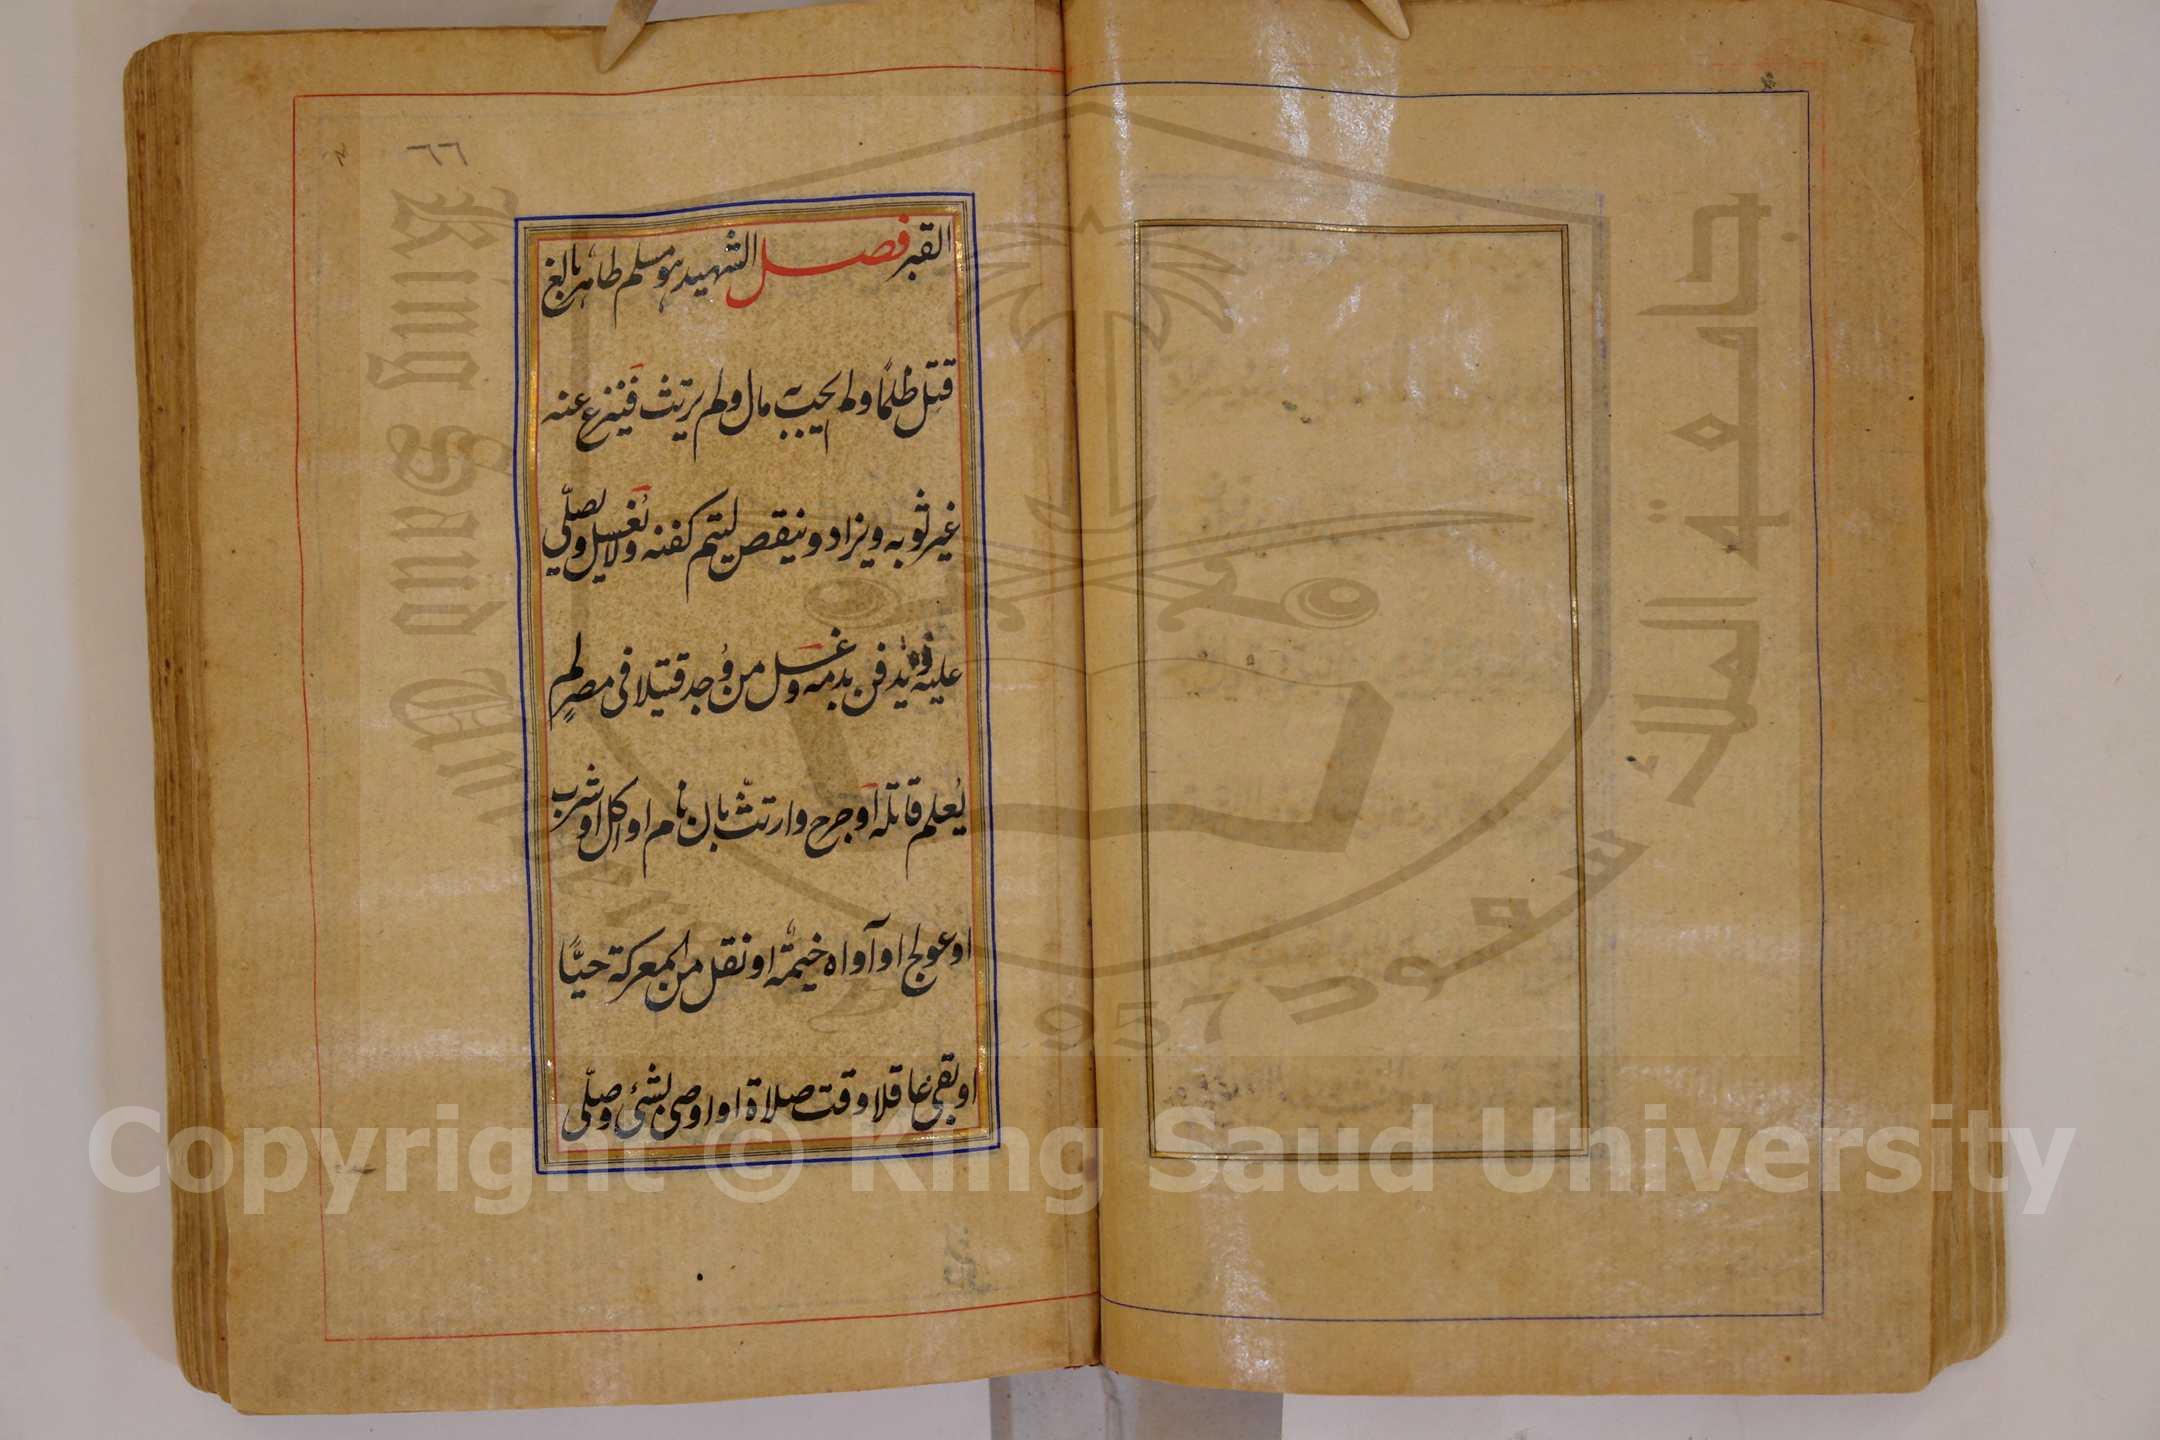 ٦٦
القبر فصل الشهيد هو مسلم طاهر بالغ
قتل ظلمًا ولم يجب به مال ولم يرتث فينزع عنه
غير ثوبه ويزاد وينقص ليتم كفنه ولا يُغسل ويصلّي
عليه ويُدفن بدمه وغسل من وُجد قتيلا في مصرٍ لم
يُعلم قاتله او جرح وارتثّ بان نام او اكل او شرب
او عولج او آواه خيمة او نقل من المعركة حيًّا
او بقي عاقلا وقت صلاة او اوصى بشئ وصلّى
جامعة الملك سعود
King Saud University
1957
Copyright © King Saud University